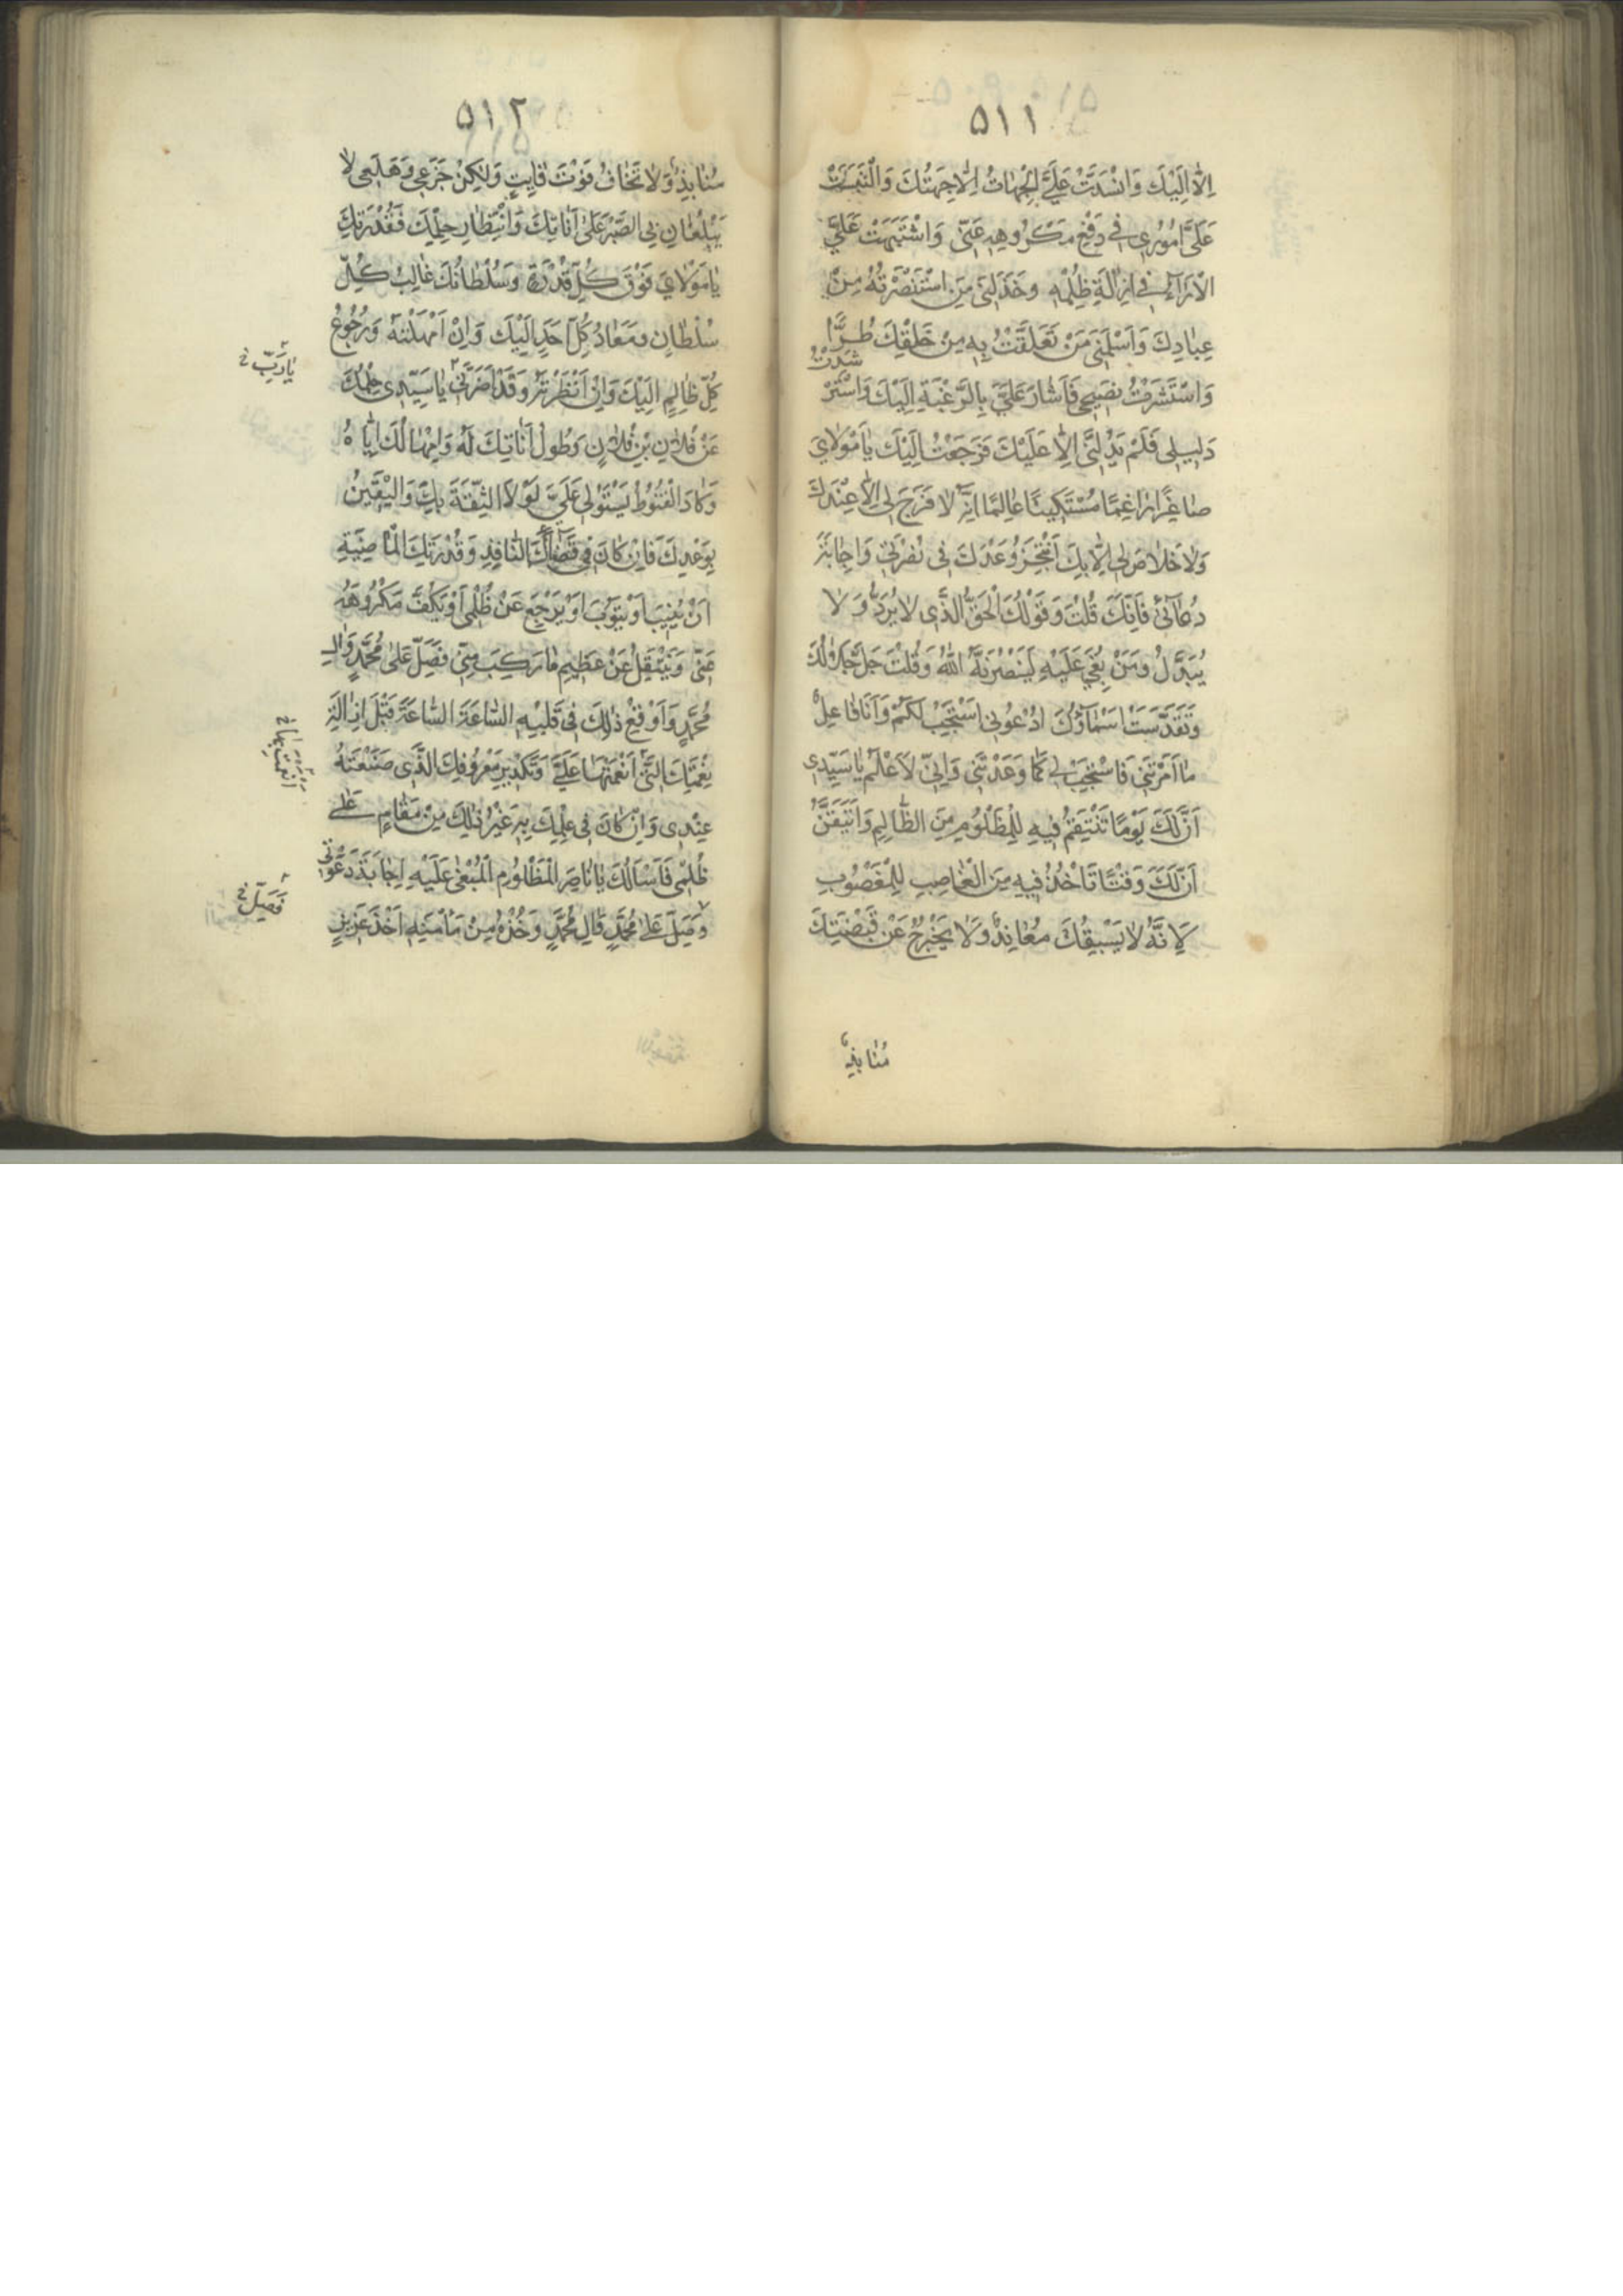 ٥١١
اِلّا اِلَيْكَ وَانْسَدَّتْ عَلَيَّ الْجِهَاتُ اِلّا جِهَتُكَ وَالْتَبَسَتْ
عَلَيَّ اُمُورِي فِي دَفْعِ مَكْرُوهِهِ عَنّي وَاشْتَبَهَتْ عَلَيَّ
الْاٰرَاءُ فِي اِزَالَةِ ظُلْمِهِ وَخَذَلَنِي مَنِ اسْتَنْصَرْتُهُ مِنْ
عِبَادِكَ وَاَسْلَمَنِي مَنْ تَعَلَّقْتُ بِهِ مِنْ خَلْقِكَ طُرًّا
وَاسْتَشَرْتُ نَصِيحِي فَاَشَارَ عَلَيَّ بِالرَّغْبَةِ اِلَيْكَ وَاسْتَرْ
شَدْتُ
دَلِيلِي فَلَمْ يَدُلَّنِي اِلّا عَلَيْكَ فَرَجَعْتُ اِلَيْكَ يَا مَوْلَايَ
صَاغِرًا رَاغِمًا مُسْتَكِينًا عَالِمًا اَنَّهُ لَا فَرَجَ لِي اِلّا عِنْدَكَ
وَلَا خَلَاصَ لِي اِلّا بِكَ اَنْتَجِزُ وَعْدَكَ فِي نُصْرَتِي وَاِجَابَةِ
دُعَائِي فَاِنَّكَ قُلْتَ وَقَوْلُكَ الْحَقُّ الَّذِي لَا يُرَدُّ وَلَا
يُبَدَّلُ وَمَنْ بُغِيَ عَلَيْهِ لَيَنْصُرَنَّهُ اللّٰهُ وَقُلْتَ جَلَّ جَلَالُكَ
وَتَقَدَّسَتْ اَسْمَاؤُكَ ادْعُونِي اَسْتَجِبْ لَكُمْ وَاَنَا فَاعِلٌ
مَا اَمَرْتَنِي فَاسْتَجِبْ لِي كَمَا وَعَدْتَنِي وَاِنّي لَاَعْلَمُ يَا سَيِّدِي
اَنَّ لَكَ يَوْمًا تَنْتَقِمُ فِيهِ لِلْمَظْلُومِ مِنَ الظَّالِمِ وَاَتَيَقَّنُ
اَنَّ لَكَ وَقْتًا تَأْخُذُ فِيهِ مِنَ الْغَاصِبِ لِلْمَغْصُوبِ
لِاَنَّهُ لَا يَسْبِقُكَ مُعَانِدٌ وَلَا يَخْرُجُ عَنْ قَبْضَتِكَ
مُنَابِذٌ
٥١٢
مُنَابِذٌ وَلَا تَخَافُ فَوْتَ فَايِتٍ وَلٰكِنْ جَزَعِي وَهَلَعِي لَا
يَبْلُغَانِ بِي الصَّبْرَ عَلَى اَنَاتِكَ وَانْتِظَارِ حِلْمِكَ فَقُدْرَتُكَ
يَا مَوْلَايَ فَوْقَ كُلِّ قُدْرَةٍ وَسُلْطَانُكَ غَالِبُ كُلِّ
سُلْطَانٍ وَمَعَادُ كُلِّ اَحَدٍ اِلَيْكَ وَاِنْ اَمْهَلْتَهُ وَرُجُوعُ
كُلِّ ظَالِمٍ اِلَيْكَ وَاِنْ اَنْظَرْتَهُ وَقَدْ اَضَرَّنِي يَا سَيِّدِي حِلْمُكَ
يَا رَبِّ خ
عَنْ فُلَانِ بْنِ فُلَانٍ وَطُولُ اَنَاتِكَ لَهُ وَاِمْهَالُكَ اِيَّاهُ
وَكَادَ الْقُنُوطُ يَسْتَوْلِي عَلَيَّ لَوْلَا الثِّقَةُ بِكَ وَالْيَقِينُ
بِوَعْدِكَ فَاِنْ كَانَ فِي قَضَائِكَ النَّافِذِ وَقُدْرَتِكَ الْمَاضِيَةِ
اَنْ يُنِيبَ اَوْ يَتُوبَ اَوْ يَرْجِعَ عَنْ ظُلْمِي اَوْ يَكُفَّ مَكْرُوهَهُ
عَنّي وَيَنْتَقِلَ عَنْ عَظِيمِ مَا رَكِبَ مِنّي فَصَلِّ عَلَى مُحَمَّدٍ وَاٰلِ
مُحَمَّدٍ وَاَوْقِعْ ذٰلِكَ فِي قَلْبِهِ السَّاعَةَ السَّاعَةَ قَبْلَ اِزَالَةِ
نِعْمَتِكَ الَّتِي اَنْعَمْتَهَا عَلَيَّ وَتَكْدِيرِ مَعْرُوفِكَ الَّذِي صَنَعْتَهُ
اَنْعَمْتَ بِهَا خ
عِنْدِي وَاِنْ كَانَ فِي عِلْمِكَ بِهِ غَيْرُ ذٰلِكَ مِنْ مَقَامٍ عَلَى
ظُلْمِي فَاَسْاَلُكَ يَا نَاصِرَ الْمَظْلُومِ الْمَبْغِيِّ عَلَيْهِ اِجَابَةَ دَعْوَتِي
وَصَلِّ عَلَى مُحَمَّدٍ وَاٰلِ مُحَمَّدٍ وَخُذْهُ مِنْ مَأْمَنِهِ اَخْذَ عَزِيزٍ
فَصَلِّ خ